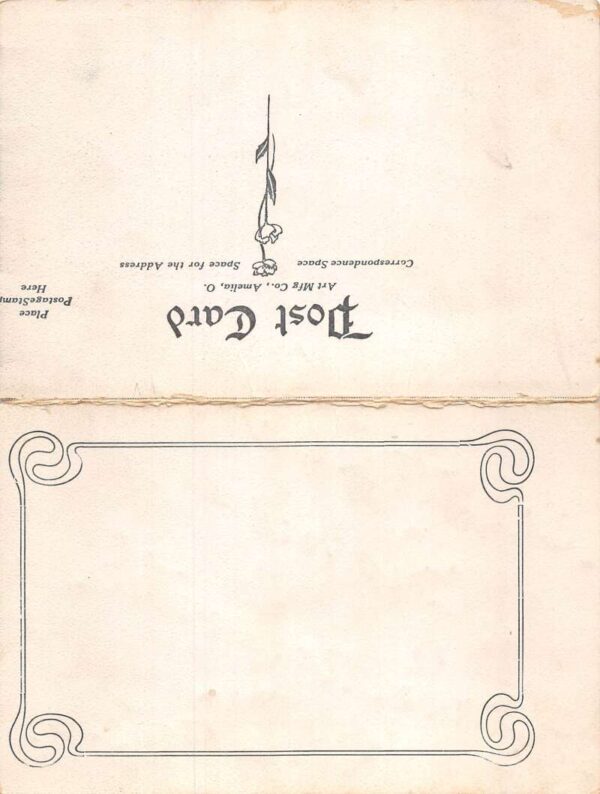 Post Card
Art Mfg Co., Amelia, O.
Correspondence Space
Space for the Address
Place
PostageStamp
Here